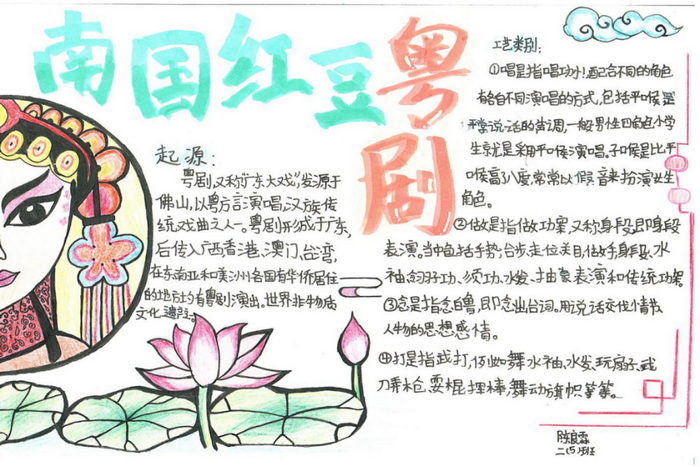 南国红豆粤剧
起源:
粤剧,又称"广东大戏",发源于
佛山,以粤方言演唱,汉族传
统戏曲之一。粤剧形成于广东,
后传入广西香港、澳门、台湾,
在东南亚和美洲各国有华侨居住
的地方均有粤剧演出。世界非物质
文化遗产。
工艺类别:
①唱是指唱功!配合不同的角色
有各自不同演唱的方式,包括平喉是
平常说话的声调,一般男性
生就是采用平喉演唱。子喉是比平
喉高八度常常以假音来扮演
角色。
②做是指做功架,又称身段,即身段
表演。当中包括手势,台步,走位关目,做手,身段,水
袖,翎子功、须功、水发、抽象表演和传统功架
③念是指念白,即念出台词。用说话交代情节
人物的思想感情。
④打是指武打,例如舞水袖、水发,玩扇子,武
刀弄枪,耍棍挥棒,舞动旗帜等等。
二(5)班